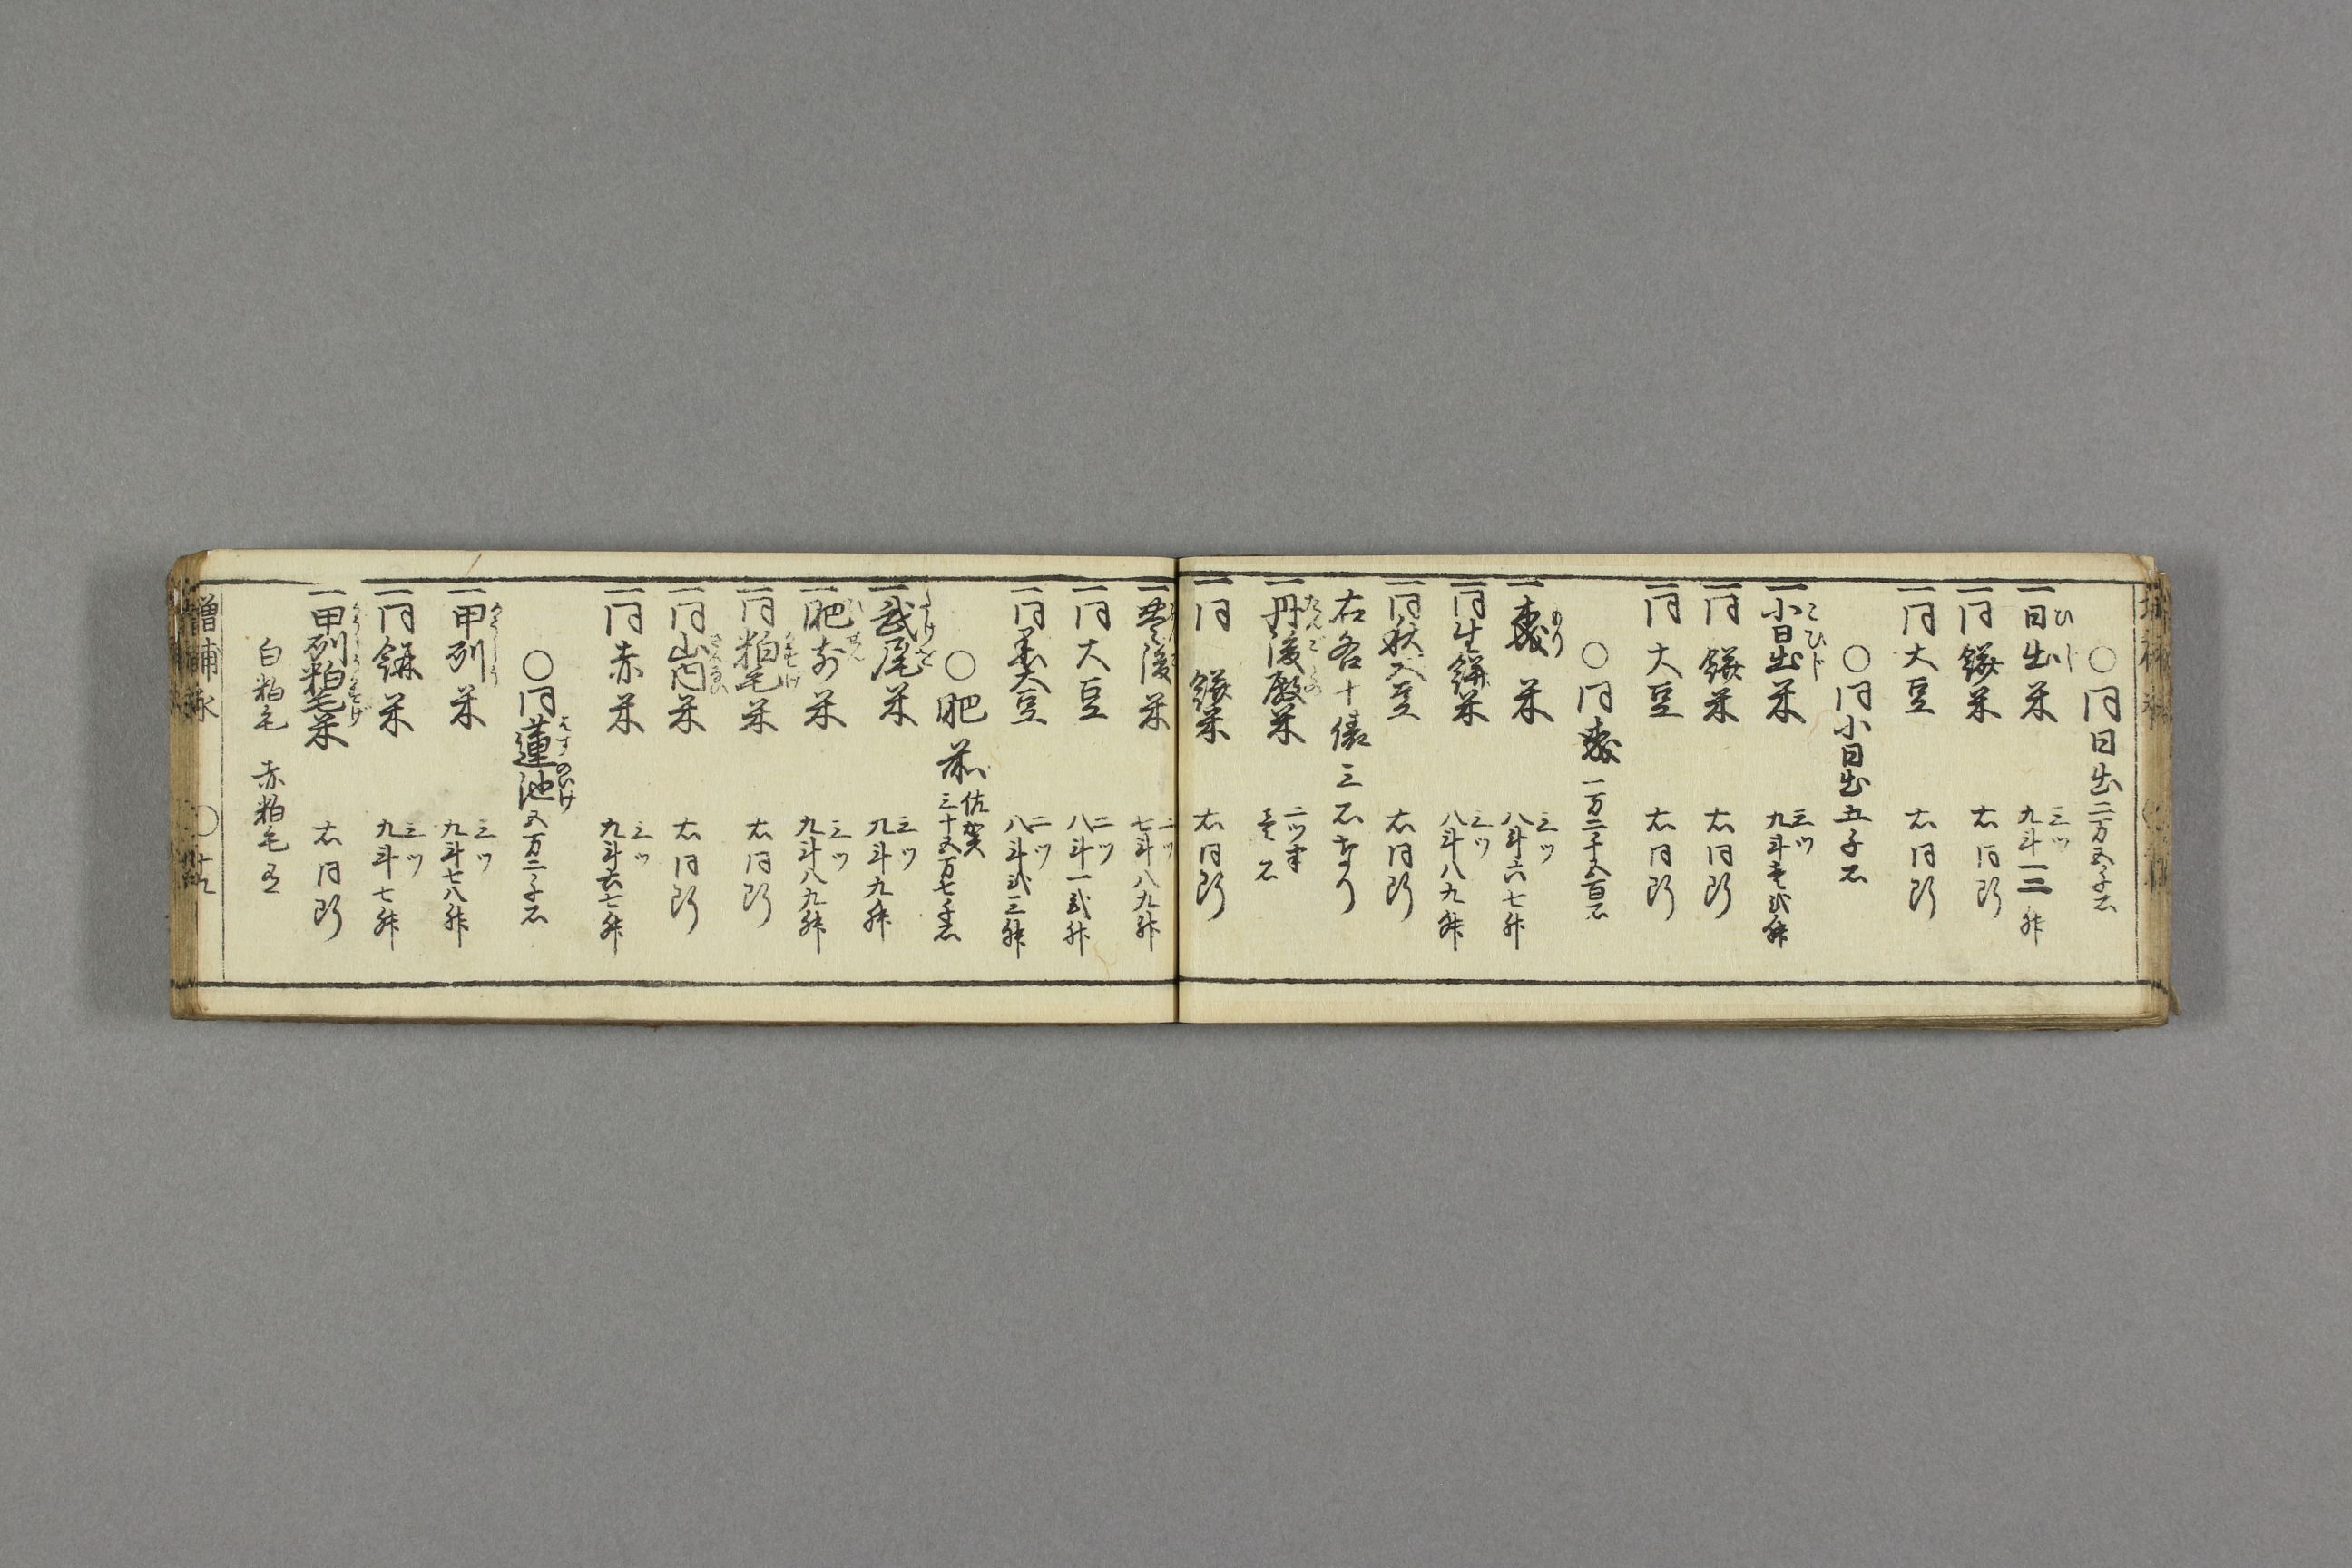 〇同日出二万五千石
一日出米 三ツ 九斗一二升
一同餅米 右同断
一同大豆 右同断
〇同小日出五千石
一小日出米 三ツ 九斗壱弐升
一同餅米 右同断
一同大豆 右同断
〇同森一万二千五百石
一森米 三ツ 八斗六七升
一同生餅米 三ツ 八斗八九升
一同秋大豆 右同断
右各十俵三石なり
一丹後殿米 二ツ半 壱石
一同餅米 右同断
一豊後米 二ツ 七斗八九升
一同大豆 二ツ 八斗一弐升
一同黒大豆 二ツ 八斗弐三升
〇肥前 佐賀 三十五万七千石
一武尾米 三ツ 九斗九升
一肥前米 三ツ 九斗八九升
一同粕毛米 右同断
一同山内米 右同断
一同赤米 三ツ 九斗六七升
〇同蓮池五万二千石
一甲列米 三ツ 九斗七八升
一同餅米 三ツ 九斗七升
一甲列粕毛米 右同断
白粕毛 赤粕毛有
増補永